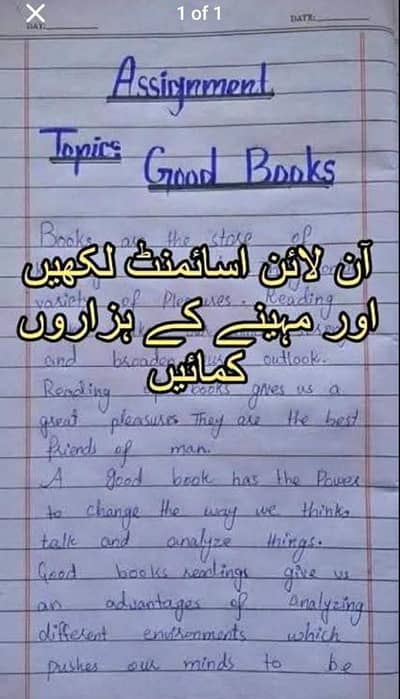 1 of 1
DAY:
DATE:
Assignment
Topic:
Good Books
Books are the store of
آن لائن اسائمنٹ لکھیں
of Pleasures. Reading
اور مہینے کے ہزاروں
and broaden outlook.
کمائیں
Reading books gives us a
great pleasures They are the best
friends of man.
A good book has the Power
to change the way we think,
talk and analyze things.
Good books readings give us
an advantages of analyzing
different environments which
pushes our minds to be